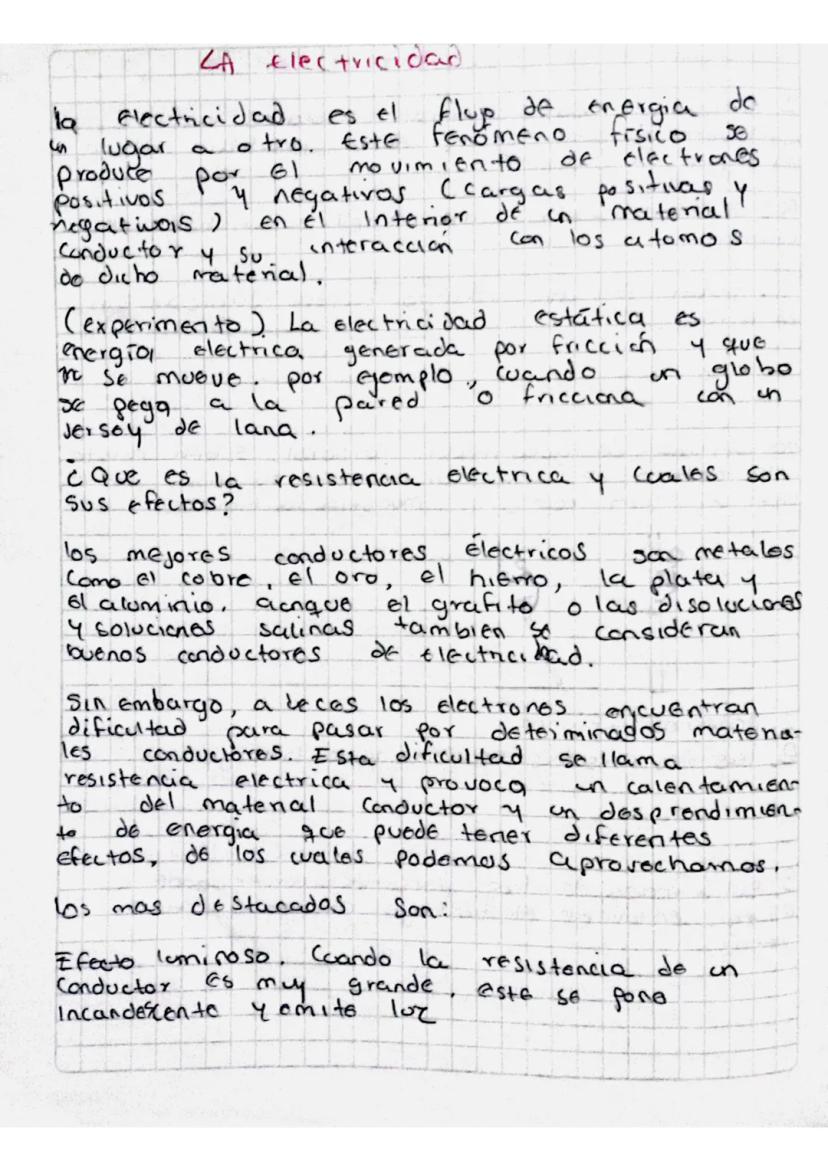 LA Electricidad
la electricidad es el flujo de energia de
un lugar a otro. Este fenómeno físico se
produce por el movimiento de electrones
positivos y negativos (cargas positivas y
negativas) en el Interior de un material
Conductor y su interacción con los atomos
de dicho material.
(experimento). La electricidad estática es
energía electrica generada por fricción y que
no se mueve. por ejemplo, cuando un globo
se pega a la pared o fricciona con un
Jersey de lana.
¿Que es la resistencia electrica y cuales son
sus efectos?
los mejores conductores électricos son metales
Como el cobre, el oro, el hierro, la plata y
el aluminio. aunque el grafito o las disoluciones
y soluciones salinas tambien se consideran
buenos conductores de electricidad.
Sin embargo, a veces los electrones encuentran
dificultad para pasar por determinados materia-
les conductores. Esta dificultad se llama
resistencia electrica y provoca un calentamien-
to del material Conductor y un desprendimien-
to de energia que puede tener diferentes
efectos, de los cuales podemos aprovecharnos.
los mas destacados Son:
Efecto luminoso. Cuando la resistencia de un
Conductor es muy grande, este se pone
incandescente y emite luz